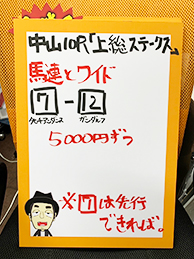 中山10R「上総ステークス」
馬連とワイド
7-12
タケトアンダンス ガンダルフ
5000円ずつ
※7は先行
できれば。